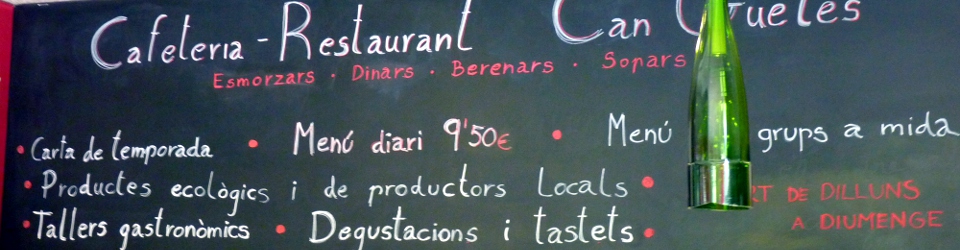 Cafeteria - Restaurant Can
Esmorzars · Dinars · Berenars · Sopars
• Carta de temporada • Menú diari 9'50€ • Menú grups a mida
• Productes ecològics i de productors Locals •
• Tallers gastronòmics • Degustacions i tastets •
DE DILLUNS
A DIUMENGE